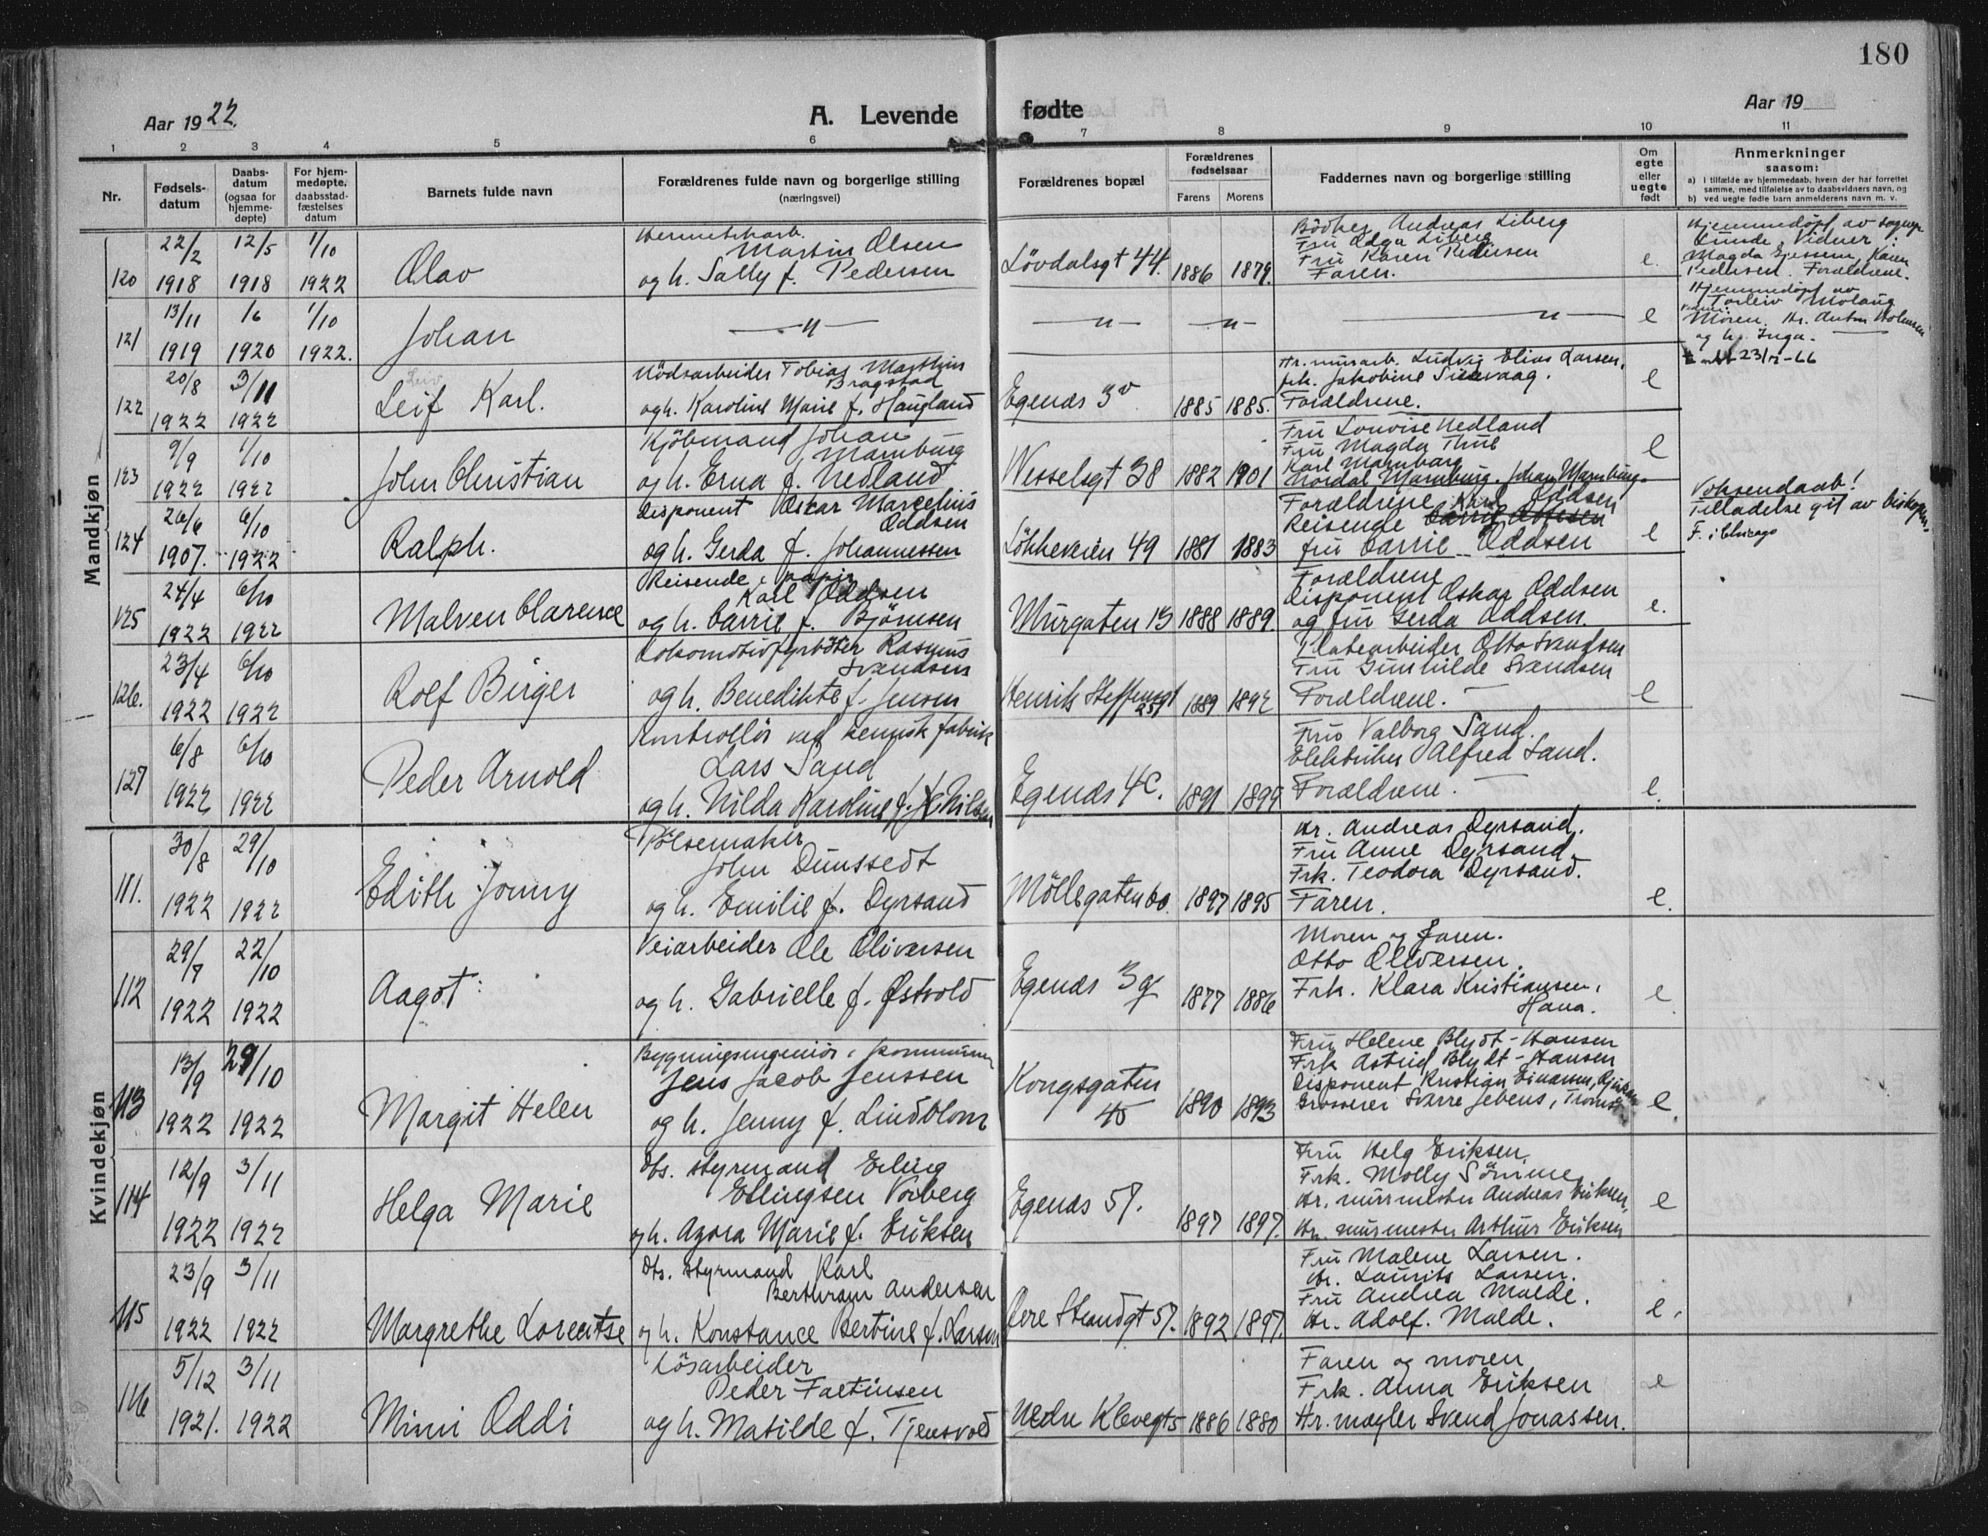 180
Aar 1922.
A. Levende fødte
Aar 19
1 2 3 4 5 6 7 8 9 10 11
Nr.
Fødsels-
datum
Daabs-
datum
(ogsaa for
hjemme-
døpte)
For hjem-
medøpte,
daabsstad-
fæstelses
datum
Barnets fulde navn
Forældrenes fulde navn og borgerlige stilling
(næringsvei)
Forældrenes bopæl
Forældrenes
fødselsaar
Farens Morens
Faddernes navn og borgerlige stilling
Om
egte
eller
uegte
født
Anmerkninger
saasom:
a) I tilfælde av hjemmedaab, hvem der har forrettet
samme, med tilføielse av to daabsvidners navn, og
b) ved uegte fødte barn anmelderens navn m. v.
Mandkjøn
120
22/2 12/5 1/10
1918 1918 1922
Olav
Martin Olsen
og h. Sally f. Pedersen
Lövdalsgt 44. 1886 1879.
Bödker Andreas Liberg
Fru Olga Liberg
Fru Karen Pedersen
Faren.
e.
Hjemmedöpt av sognepr
Lunde. Vidner:
Magda Gjessene, Karen
Pedersen. Forældrene.
121
13/11 1/6 1/10
1919 1920 1922.
Johan
— " —
— " — — " — — " —
e
Hjemmedöpt av
Torleiv Molaug
Moren, Hr. Anton Holmsen
og h. Inga.
122
20/8 3/11
1922 1922
Leif Karl.
Nödsarbeider Tobias Marthin
Bragstad
og h. Karoline Marie f. Haugland
Egenæs 3v 1885 1885.
Hr. murarb. Ludvig Elias Larsen,
frk. Jakobine Sirevaag.
Forældrene.
e
23/12-66
123
9/9 1/10
1922 1922
John Christian
Kjöbmand Johan
Marnburg
og h. Erna f. Nedland
Wesselsgt 38 1882 1901
Fru Lovise Nedland
Fru Magda Thue
Karl Marnburg
Nordal Marnburg. Johan Marnburg.
e
124
26/6 6/10
1907. 1922
Ralph.
Disponent Oskar Marcelius
Oddsen
og h. Gerda f. Johannessen
Lökkeveien 49 1881 1883
Forældrene Karl Oddsen
Reisende
fru Carrie Oddsen
e
Voksendaab!
Tilladelse git av biskopen.
F. i Chicago
125
24/4 6/10
1922 1922
Malven Clarence
Reisende i papir
Karl Oddsen
og h. Carrie f. Björnsen
Murgaten 13 1888 1889.
Forældrene
Disponent Oskar Oddsen
og fru Gerda Oddsen.
e.
126.
23/4 6/10
1922 1922
Rolf Birger
Lokomotivfyrböter Rasmus
Svendsen
og h. Benedikte f. Jensen
Henrik Steffensgt 1889 1892
Platearbeider Otto Svendsen
Fru Gunhilde Svendsen
Forældrene. —
e
127
6/8 6/10
1922 1922
Peder Arnold
Kontrollör ved hermtk fabrik
Lars Sand
og h. Hilda Karoline f. Nilsen
Egenæs 4c. 1891 1899
Fru Valborg Sand.
Elektriker Alfred Sand.
Forældrene. —
e.
Kvindekjøn
111.
30/8 29/10
1922 1922
Edith Jonny
Pölsemaker
John Dunssedt
og h. Emilie f. Dyrsand
Möllegaten 60. 1897 1895
Hr. Andreas Dyrsand.
Fru Anne Dyrsand
Frk. Teodora Dyrsand.
Faren.
e.
112
29/7 22/10
1922 1922
Aagot.
Veiarbeider Ole Oliversen
og h. Gabrielle f. Østvold
Egenæs 3g 1877 1886
Moren og faren.
Otto Oliversen.
Frk. Klara Kristiansen,
Hana.
e.
113
13/9 29/10
1922 1922
Margit Helen
Bygningsingeniör i kommunen
Jens Jacob Jenssen
og h. Jenny f. Lindblom
Kongsgaten
45 1890 1893
Fru Helene Blydt-Hansen
Frk Astrid Blydt-Hansen
Disponent Kristian Einarsen, Rjukan
Grosserer Sverre Jebens, Tromsö
e.
114
12/9 3/11
1922 1922
Helga Marie
Dts. styrmand Erling
Ellingsen Voiberg
og h. Agora Marie f. Eriksen
Egenæs 57. 1897 1897.
Fru Helg Eriksen,
Frk. Molly Sömme
Hr. murmester Andreas Eriksen,
Hr. murmester Arthur Eriksen
e
115
23/9 3/11
1922 1922
Margrethe Lorentse
Dts. styrmand Karl
Berthram Andersen
og h. Konstance Bertine f. Larsen
Övre Strandgt 57. 1892 1897.
Fru Malene Larsen.
Hr. Laurits Larsen.
Fru Andrea Malde.
Hr. Adolf. Malde.
e.
116
5/12 3/11
1921. 1922
Mimi Oddi
Lösarbeider
Peder Faetinsen
og h. Matilde f. Tjensvold
Nedre Klevegt 5 1886 1880
Faren og moren
Frk. Anna Eriksen
Hr. mægler Svend Jonassen.
e